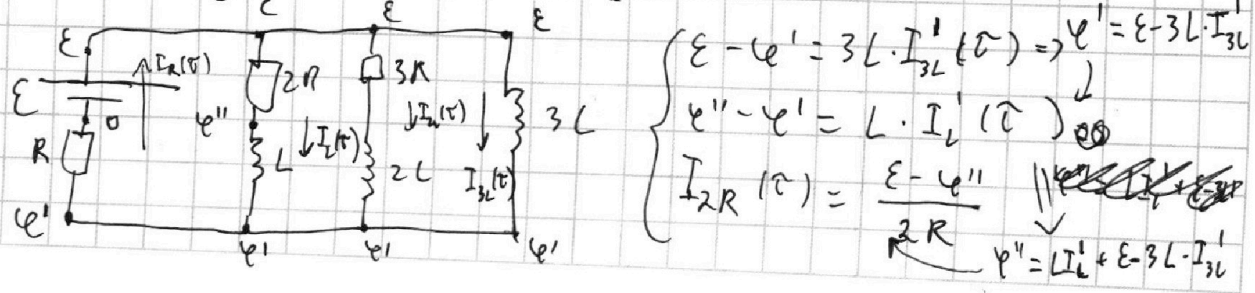 ε ε ε
ε I_R(τ) 2R 3R
ε 0 φ'' ↓I_L(τ) ↓I_{2L}(τ) 3L
R L 2L I_{3L}(τ)
φ' φ' φ' φ'
ε - φ' = 3L·I'_{3L}(τ) => φ' = ε - 3L·I'_{3L}
φ'' - φ' = L·I'_L(τ)
I_{2R}(τ) = (ε - φ'')/2R
φ'' = LI'_L + ε - 3L·I'_{3L}